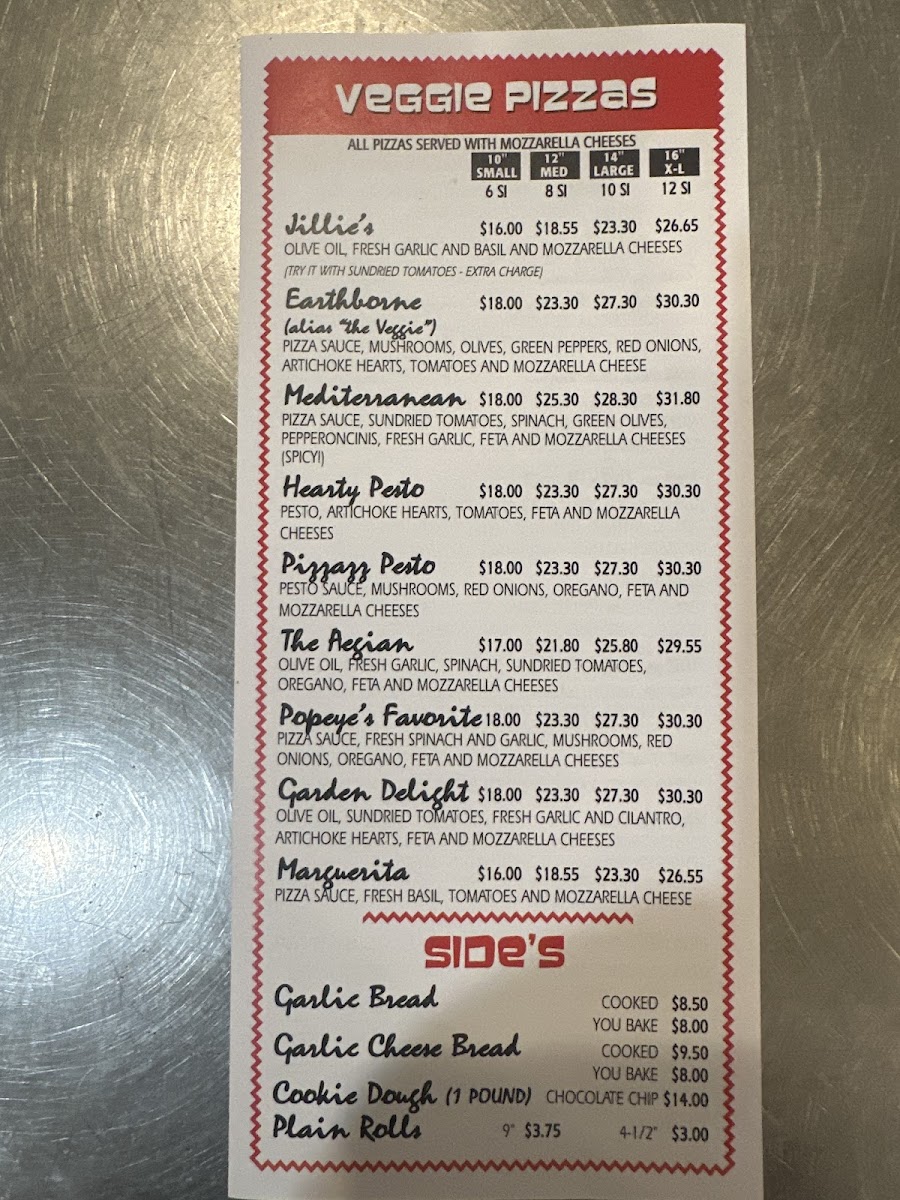 VEGGIE PIZZAS
ALL PIZZAS SERVED WITH MOZZARELLA CHEESES
10" 12" 14" 16"
SMALL MED LARGE X-L
6 Sl 8 Sl 10 Sl 12 Sl
Jillie's $16.00 $18.55 $23.30 $26.65
OLIVE OIL, FRESH GARLIC AND BASIL AND MOZZARELLA CHEESES
(TRY IT WITH SUNDRIED TOMATOES - EXTRA CHARGE)
Earthborne $18.00 $23.30 $27.30 $30.30
(alias "the Veggie")
PIZZA SAUCE, MUSHROOMS, OLIVES, GREEN PEPPERS, RED ONIONS,
ARTICHOKE HEARTS, TOMATOES AND MOZZARELLA CHEESE
Mediterranean $18.00 $25.30 $28.30 $31.80
PIZZA SAUCE, SUNDRIED TOMATOES, SPINACH, GREEN OLIVES,
PEPPERONCINIS, FRESH GARLIC, FETA AND MOZZARELLA CHEESES
(SPICY!)
Hearty Pesto $18.00 $23.30 $27.30 $30.30
PESTO, ARTICHOKE HEARTS, TOMATOES, FETA AND MOZZARELLA
CHEESES
Pizzazz Pesto $18.00 $23.30 $27.30 $30.30
PESTO SAUCE, MUSHROOMS, RED ONIONS, OREGANO, FETA AND
MOZZARELLA CHEESES
The Aegian $17.00 $21.80 $25.80 $29.55
OLIVE OIL, FRESH GARLIC, SPINACH, SUNDRIED TOMATOES,
OREGANO, FETA AND MOZZARELLA CHEESES
Popeye's Favorite 18.00 $23.30 $27.30 $30.30
PIZZA SAUCE, FRESH SPINACH AND GARLIC, MUSHROOMS, RED
ONIONS, OREGANO, FETA AND MOZZARELLA CHEESES
Garden Delight $18.00 $23.30 $27.30 $30.30
OLIVE OIL, SUNDRIED TOMATOES, FRESH GARLIC AND CILANTRO,
ARTICHOKE HEARTS, FETA AND MOZZARELLA CHEESES
Marguerita $16.00 $18.55 $23.30 $26.55
PIZZA SAUCE, FRESH BASIL, TOMATOES AND MOZZARELLA CHEESE
SIDE'S
Garlic Bread COOKED $8.50
YOU BAKE $8.00
Garlic Cheese Bread COOKED $9.50
YOU BAKE $8.00
Cookie Dough (1 POUND) CHOCOLATE CHIP $14.00
Plain Rolls 9" $3.75 4-1/2" $3.00